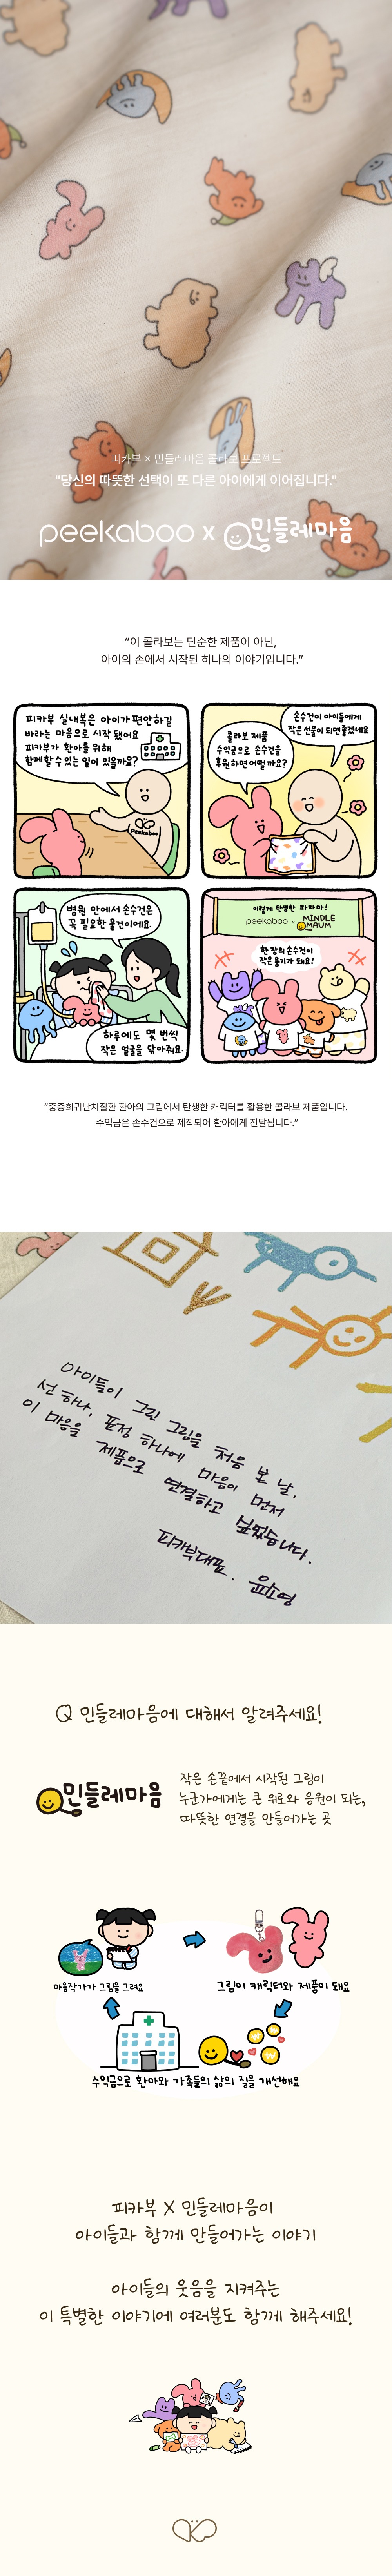 피카부 × 민들레마음 콜라보 프로젝트
"당신의 따뜻한 선택이 또 다른 아이에게 이어집니다."
peekaboo x 민들레마음
“이 콜라보는 단순한 제품이 아닌,
아이의 손에서 시작된 하나의 이야기입니다.”
피카부 실내복은 아이가 편안하길
바라는 마음으로 시작 됐어요
피카부가 환아를 위해
함께할 수 있는 일이 있을까요?
Peekaboo
손수건이 아이들에게
작은 선물이 되면 좋겠네요
콜라보 제품
수익금으로 손수건을
후원하면 어떨까요?
병원 안에서 손수건은
꼭 필요한 물건이에요.
하루에도 몇 번씩
작은 얼굴을 닦아줘요
이렇게 탄생한 파자마!
peekaboo × MINDLE
MAUM
한 장의 손수건이
작은 용기가 돼요!
“중증희귀난치질환 환아의 그림에서 탄생한 캐릭터를 활용한 콜라보 제품입니다.
수익금은 손수건으로 제작되어 환아에게 전달됩니다.”
아이들이 그린 그림을 처음 본 날,
선 하나, 표정 하나에 마음이 먼저
이 마음을 제품으로 연결하고 싶었습니다.
피카부대표. 윤소영
Q 민들레마음에 대해서 알려주세요!
민들레마음
작은 손끝에서 시작된 그림이
누군가에게는 큰 위로와 응원이 되는,
따뜻한 연결을 만들어가는 곳
마음작가가 그림을 그려요
그림이 캐릭터와 제품이 돼요
수익금으로 환아와 가족들의 삶의 질을 개선해요
피카부 X 민들레마음이
아이들과 함께 만들어가는 이야기
아이들의 웃음을 지켜주는
이 특별한 이야기에 여러분도 함께 해주세요!